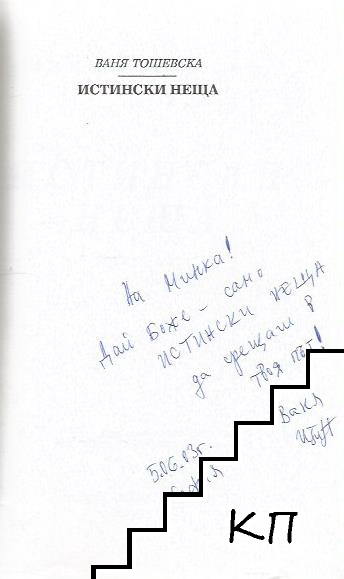 ВАНЯ ТОШЕВСКА
ИСТИНСКИ НЕЩА
На Минка!
Дай Боже – само
ИСТИНСКИ НЕЩА
да срещаш в
твоя път!
Ваня
5.06.03г.
КП